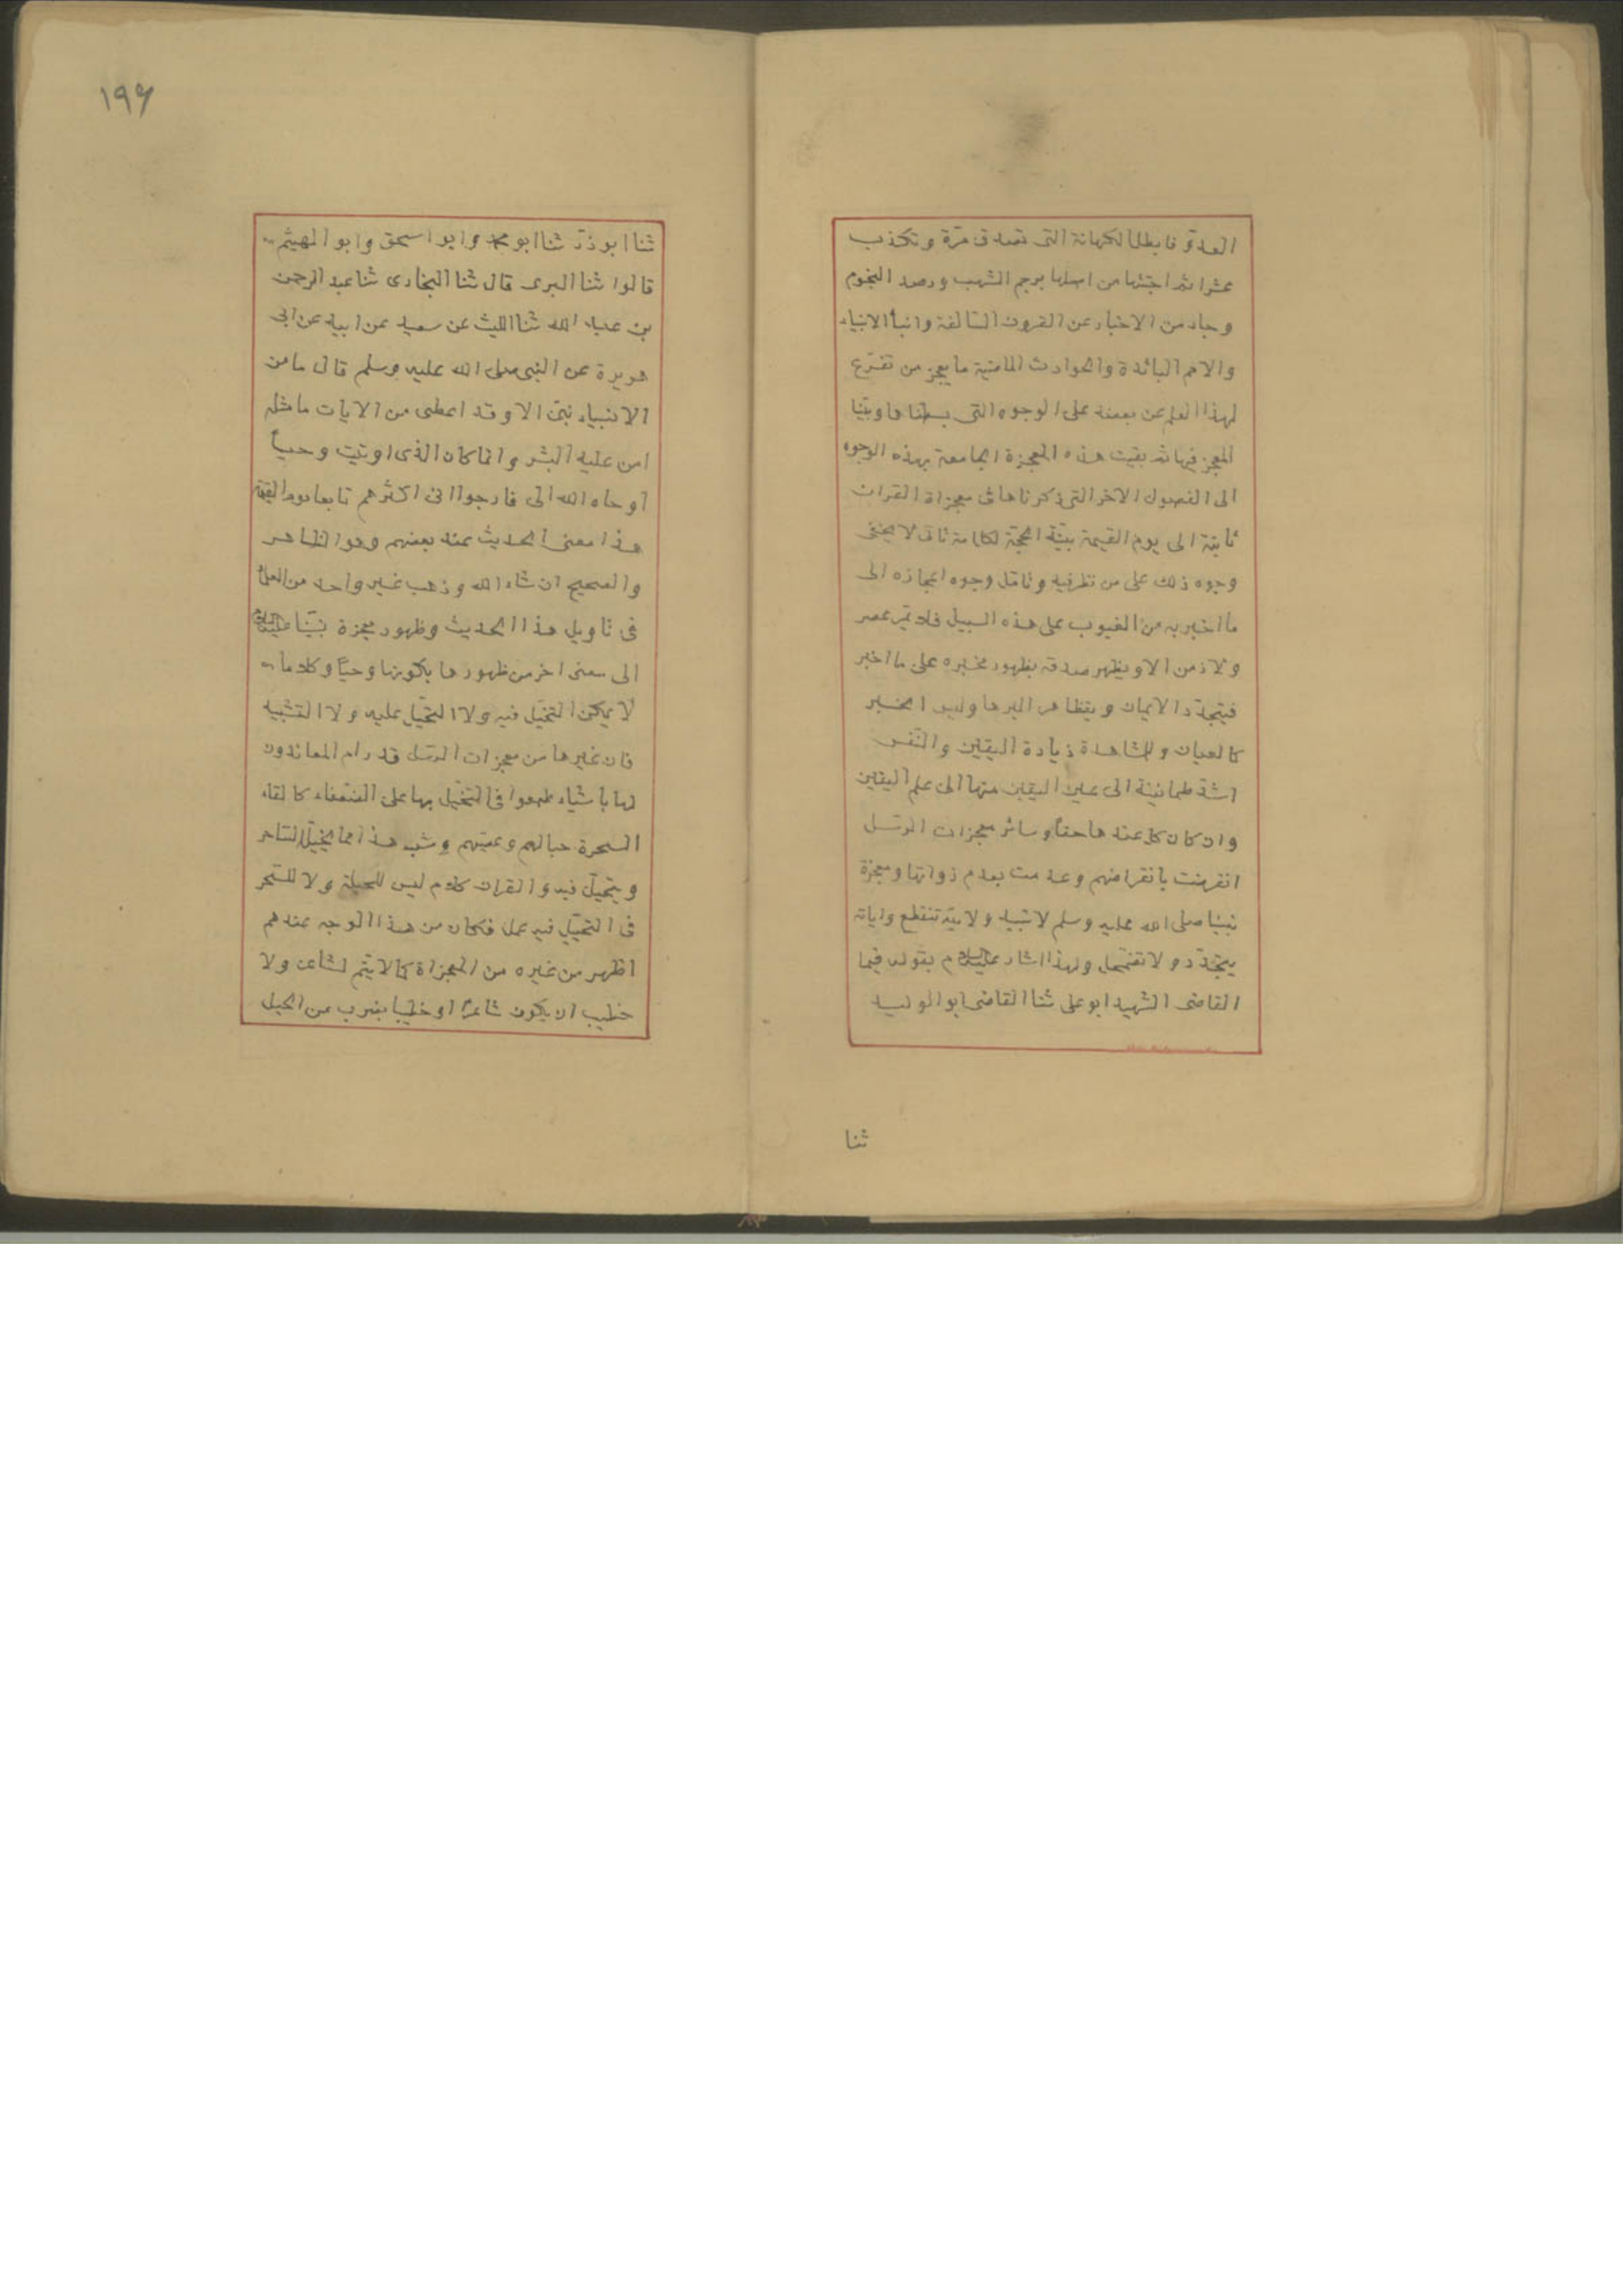 العدوّ فابطل الكهانة التى تصدق مرّة وتكذب
عشرا ثم اجتثها من اصلها برجم الشهب ورصد النجوم
وجاء من الاخبار عن القرون السّالفة وانبأ الانبياء
والامم البائدة والحوادث الماضية ما يعجز من تفرّع
لهذا العلم عن بعضه على الوجوه التى بسطناها وبيّنّا
المعجز فيها ثم بقيت هذه المعجزة الجامعة بهذه الوجوه
الى الفصول الاخر التى ذكرناها فى معجزاة القران
ثابتة الى يوم القيمة بيّنة الحجّة لكل امة تاتى لا يخفى
وجوه ذلك على من نظر فيه وتامّل وجوه اعجازه الى
ما اخبر به من الغيوب على هذه السبيل فلا يمرّ عصر
ولا زمن الا ويظهر صدقه بظهور مخبره على ما اخبر
فيتجدّد الايمان ويتظاهر البرهان وليس الخبر
كالعيان وللمشاهدة زيادة اليقين والنّفس
اشدّ طمانينة الى عين اليقين منها الى علم اليقين
وان كان كل عندها حقّا وسائر معجزات الرسل
انقرضت بانقراضهم وعدمت بعدم ذواتها ومعجزة
نبينا صلى الله عليه وسلم لا تبيد ولا تنقطع واياته
يتجدّد ولا تضمحل ولهذا اشار عليه السلام بقوله فيما
القاضى الشهيد ابو على ثنا القاضى ابو الوليد
ثنا
١٩٦
ثنا ابو ذرّ ثنا ابو محمد وابو اسحق وابو الهيثم
قالوا ثنا الفربرى قال ثنا البخارى ثنا عبد الرحمن
بن عبد الله ثنا الليث عن سعيد عن ابيه عن ابى
هريرة عن النبى صلى الله عليه وسلم قال ما من
الانبياء نبىّ الا وقد اعطى من الايات ما مثله
امن عليه البشر وانما كان الذى اوتيت وحياً
اوحاه الله الى فارجوا انى اكثرهم تابعا يوم القيمة
هذا معنى الحديث عند بعضهم وهو الظاهر
والصحيح ان شاء الله وذهب غير واحد من العلماء
فى تاويل هذا الحديث وظهور معجزة نبيّنا عليه السلام
الى معنى اخر من ظهورها بكونها وحيًا وكلاما
لا يمكن التخيّل فيه ولا التحيّل عليه ولا التشبيه
فان غيرها من معجزات الرسل قد رام المعاندون
لها باشياء طمعوا فى التخيّل بها على الضعفاء كالقاء
السحرة حبالهم وعصيّهم وشبه هذا مما يخيّل الساحر
ويتحيّل فيه والقران كلام ليس للحيلة ولا للسّحر
فى التخيّل فيه عمل فكان من هذا الوجه عندهم
اظهر من غيره من المعجزاة كما لا يتم لشاعر ولا
خطيب ان يكون شاعرًا او خطيبا بضرب من الحيل